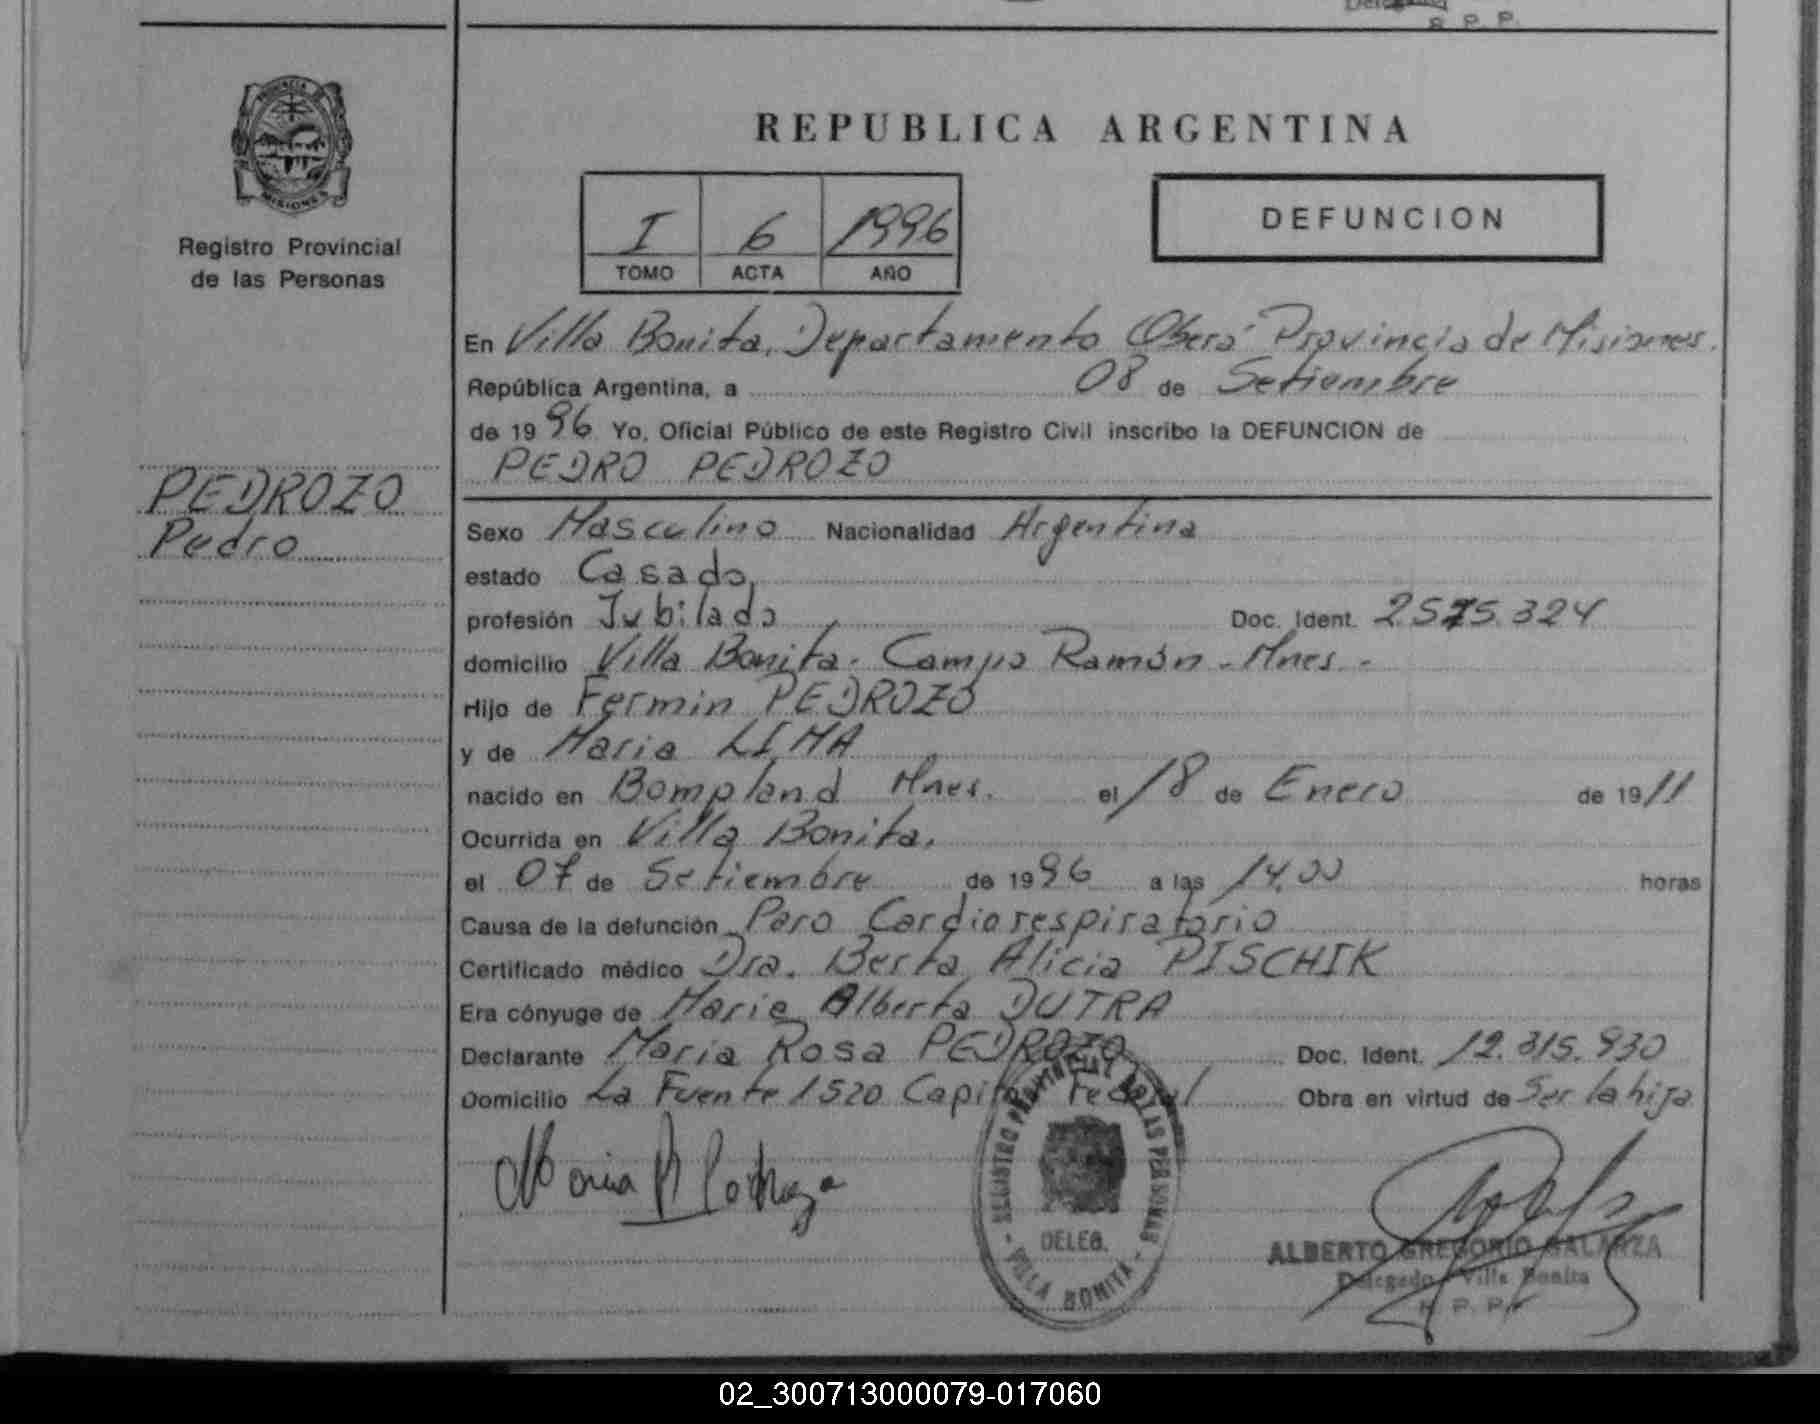 S. P. P.
MISIONES
Registro Provincial
de las Personas
PEDROZO
Pedro
REPUBLICA ARGENTINA
I 6 1996
TOMO ACTA AÑO
DEFUNCION
En Villa Bonita, Departamento Oberá Provincia de Misiones.
República Argentina, a 08 de Setiembre
de 1996 Yo, Oficial Público de este Registro Civil inscribo la DEFUNCION de
PEDRO PEDROZO
Sexo Masculino Nacionalidad Argentina
estado Casado,
profesión Jubilado Doc. Ident. 2575.324
domicilio Villa Bonita. Campo Ramón - Mnes. -
Hijo de Fermin PEDROZO
y de Maria LIMA
nacido en Bompland Mnes. el 18 de Enero de 1911
Ocurrida en Villa Bonita.
el 07 de Setiembre de 1996 a las 14.00 horas
Causa de la defunción Paro Cardiorespiratorio
Certificado médico Dra. Berta Alicia PISCHIK
Era cónyuge de Maria Alberta DUTRA
Declarante Maria Rosa PEDROZO Doc. Ident. 12.315.930
Domicilio La Fuente 1520 Capital Federal Obra en virtud de Ser la hija
Maria R
REGISTRO PROVINCIAL DE LAS PERSONAS
DELEG.
- VILLA BONITA -
ALBERTO GREGORIO GALARZA
Delegado Villa Bonita
R. P. P.
02_300713000079-017060